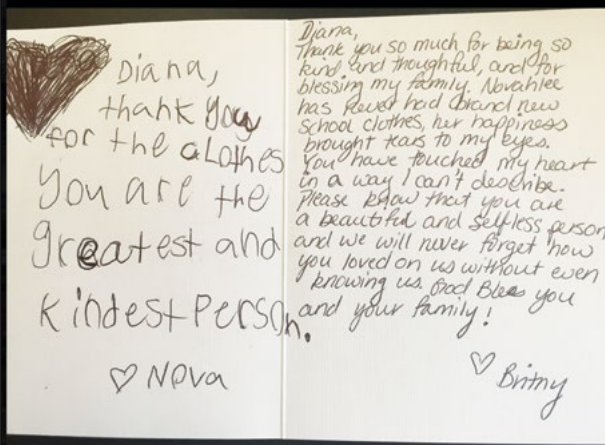 Diana,
thank you
for the clothes
You are the
greatest and
kindest Person.
♡ Nova
Diana,
Thank you so much for being so
kind and thoughtful, and for
blessing my family. Novahlee
has never had brand new
school clothes, her happiness
brought tears to my eyes.
You have touched my heart
in a way I can't describe.
Please know that you are
a beautiful and selfless person
and we will never forget how
you loved on us without even
knowing us. God Bless you
and your family!
♡ Britny